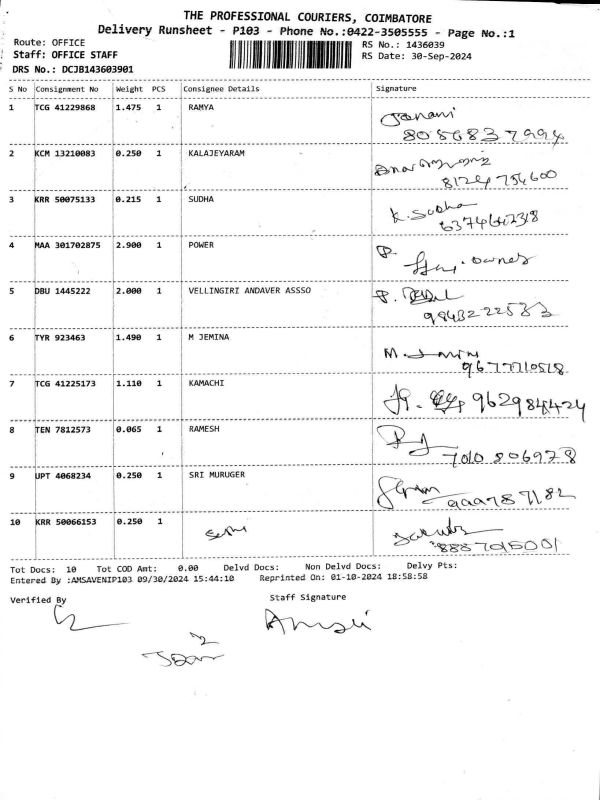 THE PROFESSIONAL COURIERS, COIMBATORE
Delivery Runsheet - P103 - Phone No.:0422-3505555 - Page No.:1
Route: OFFICE
RS No.: 1436039
Staff: OFFICE STAFF
RS Date: 30-Sep-2024
DRS No.: DCJB143603901
S No Consignment No Weight PCS Consignee Details Signature
1 TCG 41229868 1.475 1 RAMYA Janani
2 KCM 13210083 0.250 1 KALAJEYARAM
8124 754600
3 KRR 50075133 0.215 1 SUDHA K. Sudha
4 MAA 301702875 2.900 1 POWER
5 DBU 1445222 2.000 1 VELLINGIRI ANDAVER ASSSO
9843222533
6 TYR 923463 1.490 1 M JEMINA
9677710518
7 TCG 41225173 1.110 1 KAMACHI 9629844424
8 TEN 7812573 0.065 1 RAMESH
7010 806978
9 UPT 4068234 0.250 1 SRI MURUGER
10 KRR 50066153 0.250 1
8887015001
Tot Docs: 10 Tot COD Amt: 0.00 Delvd Docs: Non Delvd Docs: Delvy Pts:
Entered By :AMSAVENIP103 09/30/2024 15:44:10 Reprinted On: 01-10-2024 18:58:58
Verified By Staff Signature